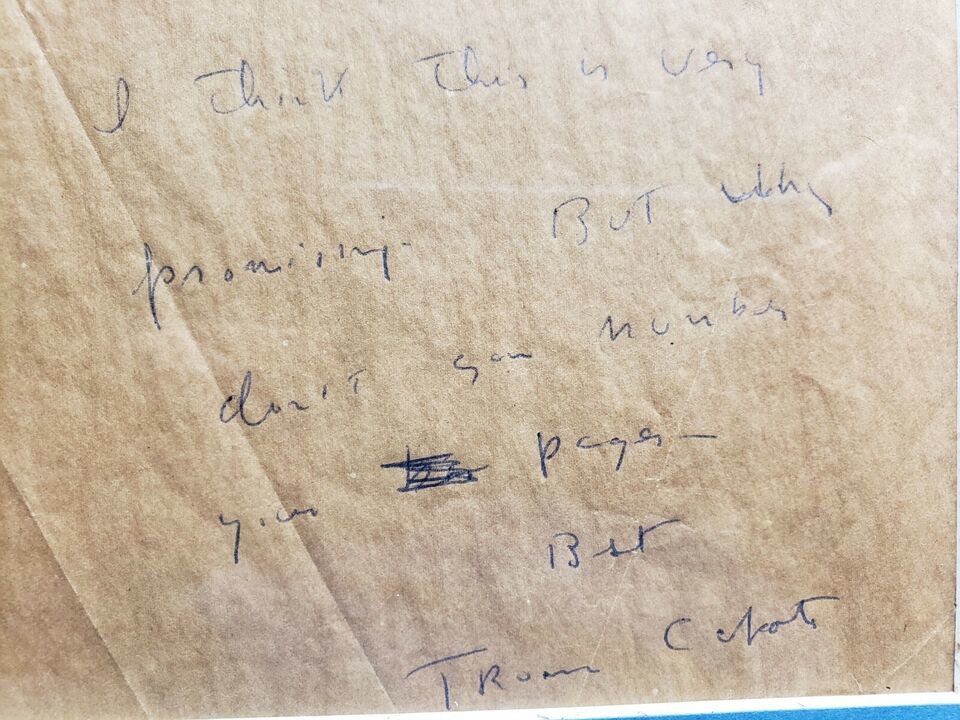 I think this is very
promising. But why
don't you number
your pages—
Best
Truman Capote